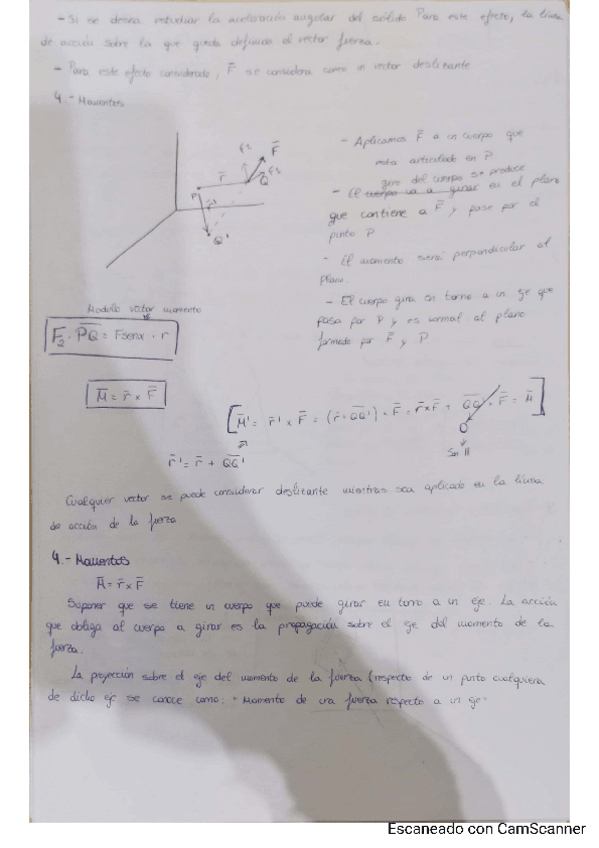 - Si se desea estudiar la aceleración angular del sólido Para este efecto, la línea
de acción sobre la que queda definido el vector fuerza.
- Para este efecto considerado, F̄ se considera como un vector deslizante
4.- Momentos
F̄
F2
Q
r̄
P
r̄'
Q'
- Aplicamos F̄ a un cuerpo que
esta articulado en P.
giro del cuerpo se produce
- El cuerpo va a girar en el plano
que contiene a F̄ y pase por el
punto P
- El momento será perpendicular al
plano.
- El cuerpo gira en torno a un eje que
pasa por P y es normal al plano
formado por F̄ y P
Modulo vector momento
F₂ · P̅Q̅ = Fsenα · r
M̄ = r̄ x F̄
[M̄' = r̄' x F̄ = (r̄ + Q̅Q̅') x F̄ = r̄ x F̄ + Q̅Q̅' x F̄ = M̄]
0
Son //
r̄' = r̄ + Q̅Q̅'
Cualquier vector se puede considerar deslizante mientras sea aplicado en la línea
de acción de la fuerza
4.- Momentos
M̄ = r̄ x F̄
Suponer que se tiene un cuerpo que puede girar en torno a un eje. La acción
que obliga al cuerpo a girar es la propagación sobre el eje del momento de la
fuerza.
La proyección sobre el eje del momento de la fuerza (respecto de un punto cualquiera
de dicho eje se conoce como: "Momento de una fuerza respecto a un eje"
Escaneado con CamScanner